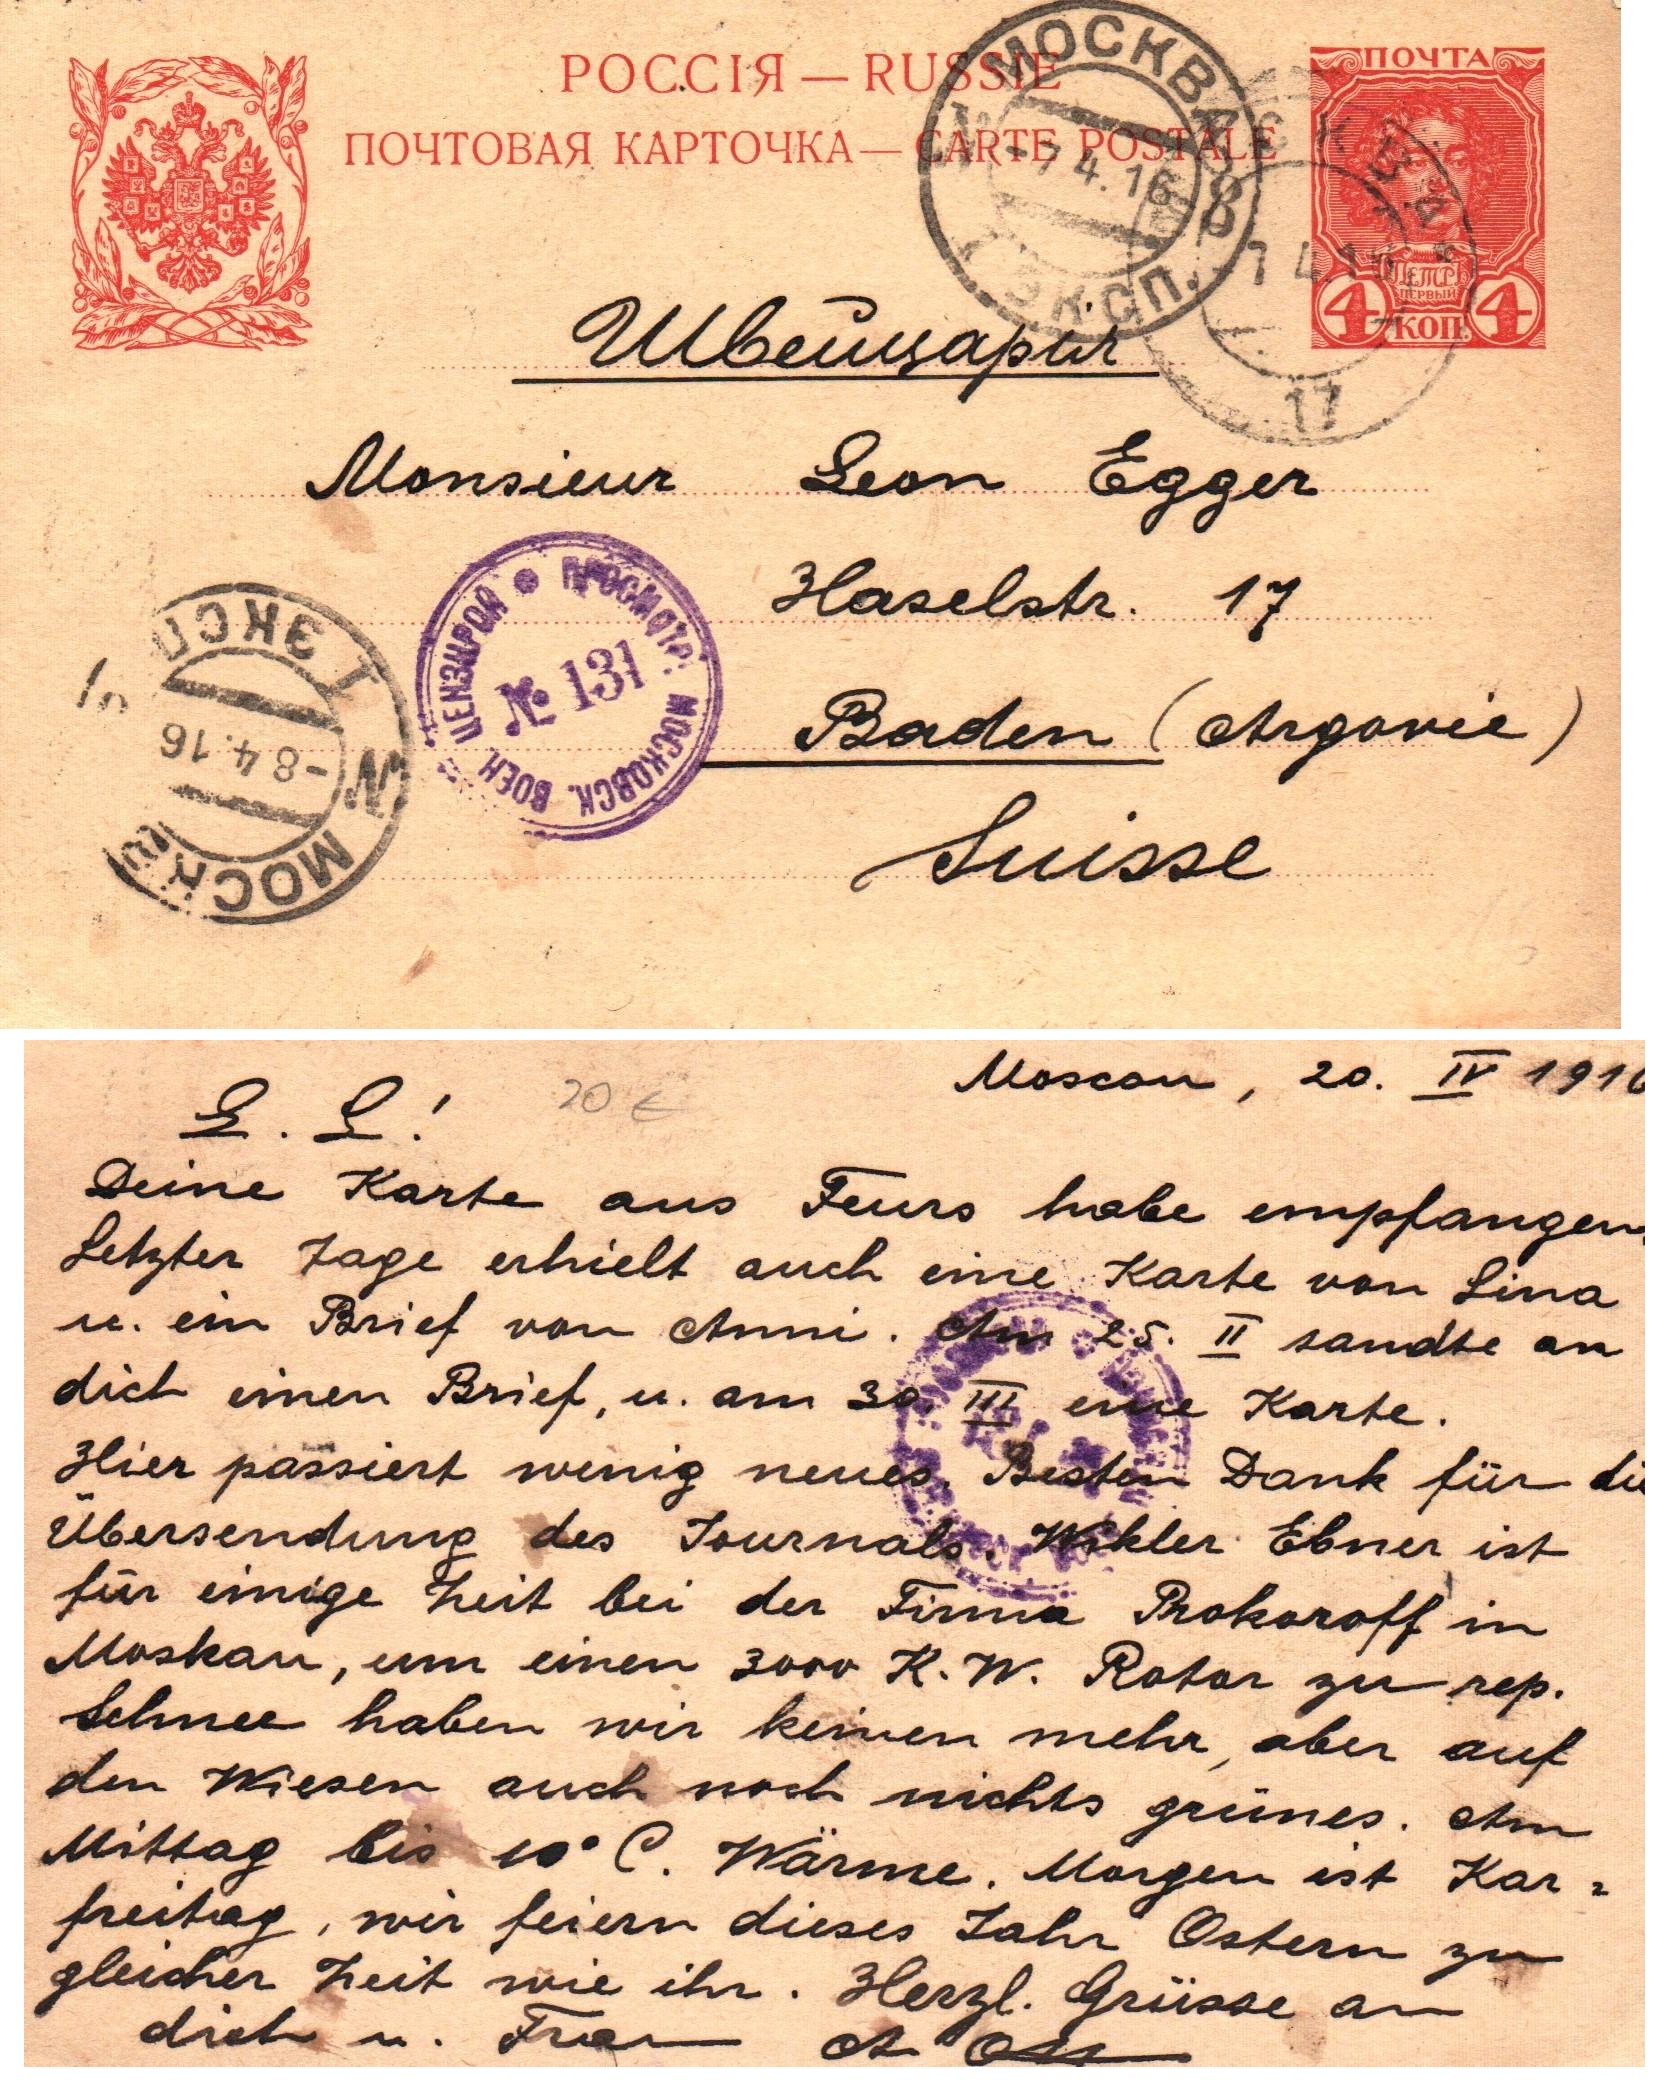 РОССІЯ — RUSSIE
ПОЧТОВАЯ КАРТОЧКА — CARTE POSTALE
ПОЧТА
ПЕТРЪ
ПЕРВЫЙ
4 КОП. 4
МОСКВА
-7 4.16
I ЭКСП.
7 4 16
17
Швейцарія
Monsieur Leon Egger
Haselstr. 17
Baden (Argovie)
Suisse
ПРОСМОТР. МОСКОВСК. ВОЕН. ЦЕНЗУРОЙ
№ 131
I ЭКСП
-8 4.16
МОСК
20 €
Moscou, 20. IV 1916
L. L!
Deine Karte aus Feurs habe empfangen.
Letzter Tage erhielt auch eine Karte von Lina
u. ein Brief von Anni. Am 25. II sandte an
dich einen Brief, u. am 30. III eine Karte.
Hier passiert wenig neues. Besten Dank für die
Übersendung des Journals. Wikler Ebner ist
für einige Zeit bei der Firma Prokoroff in
Moskau, um einen 3000 K.W. Rotor zu rep.
Schnee haben wir keinen mehr, aber auf
den Wiesen auch noch nichts grünes. Am
Mittag bis 10° C. Wärme. Morgen ist Kar=
freitag, wir feiern dieses Jahr Ostern zu
gleicher Zeit wie ihr. Herzl. Grüsse an
dich u. Frau A. Ott